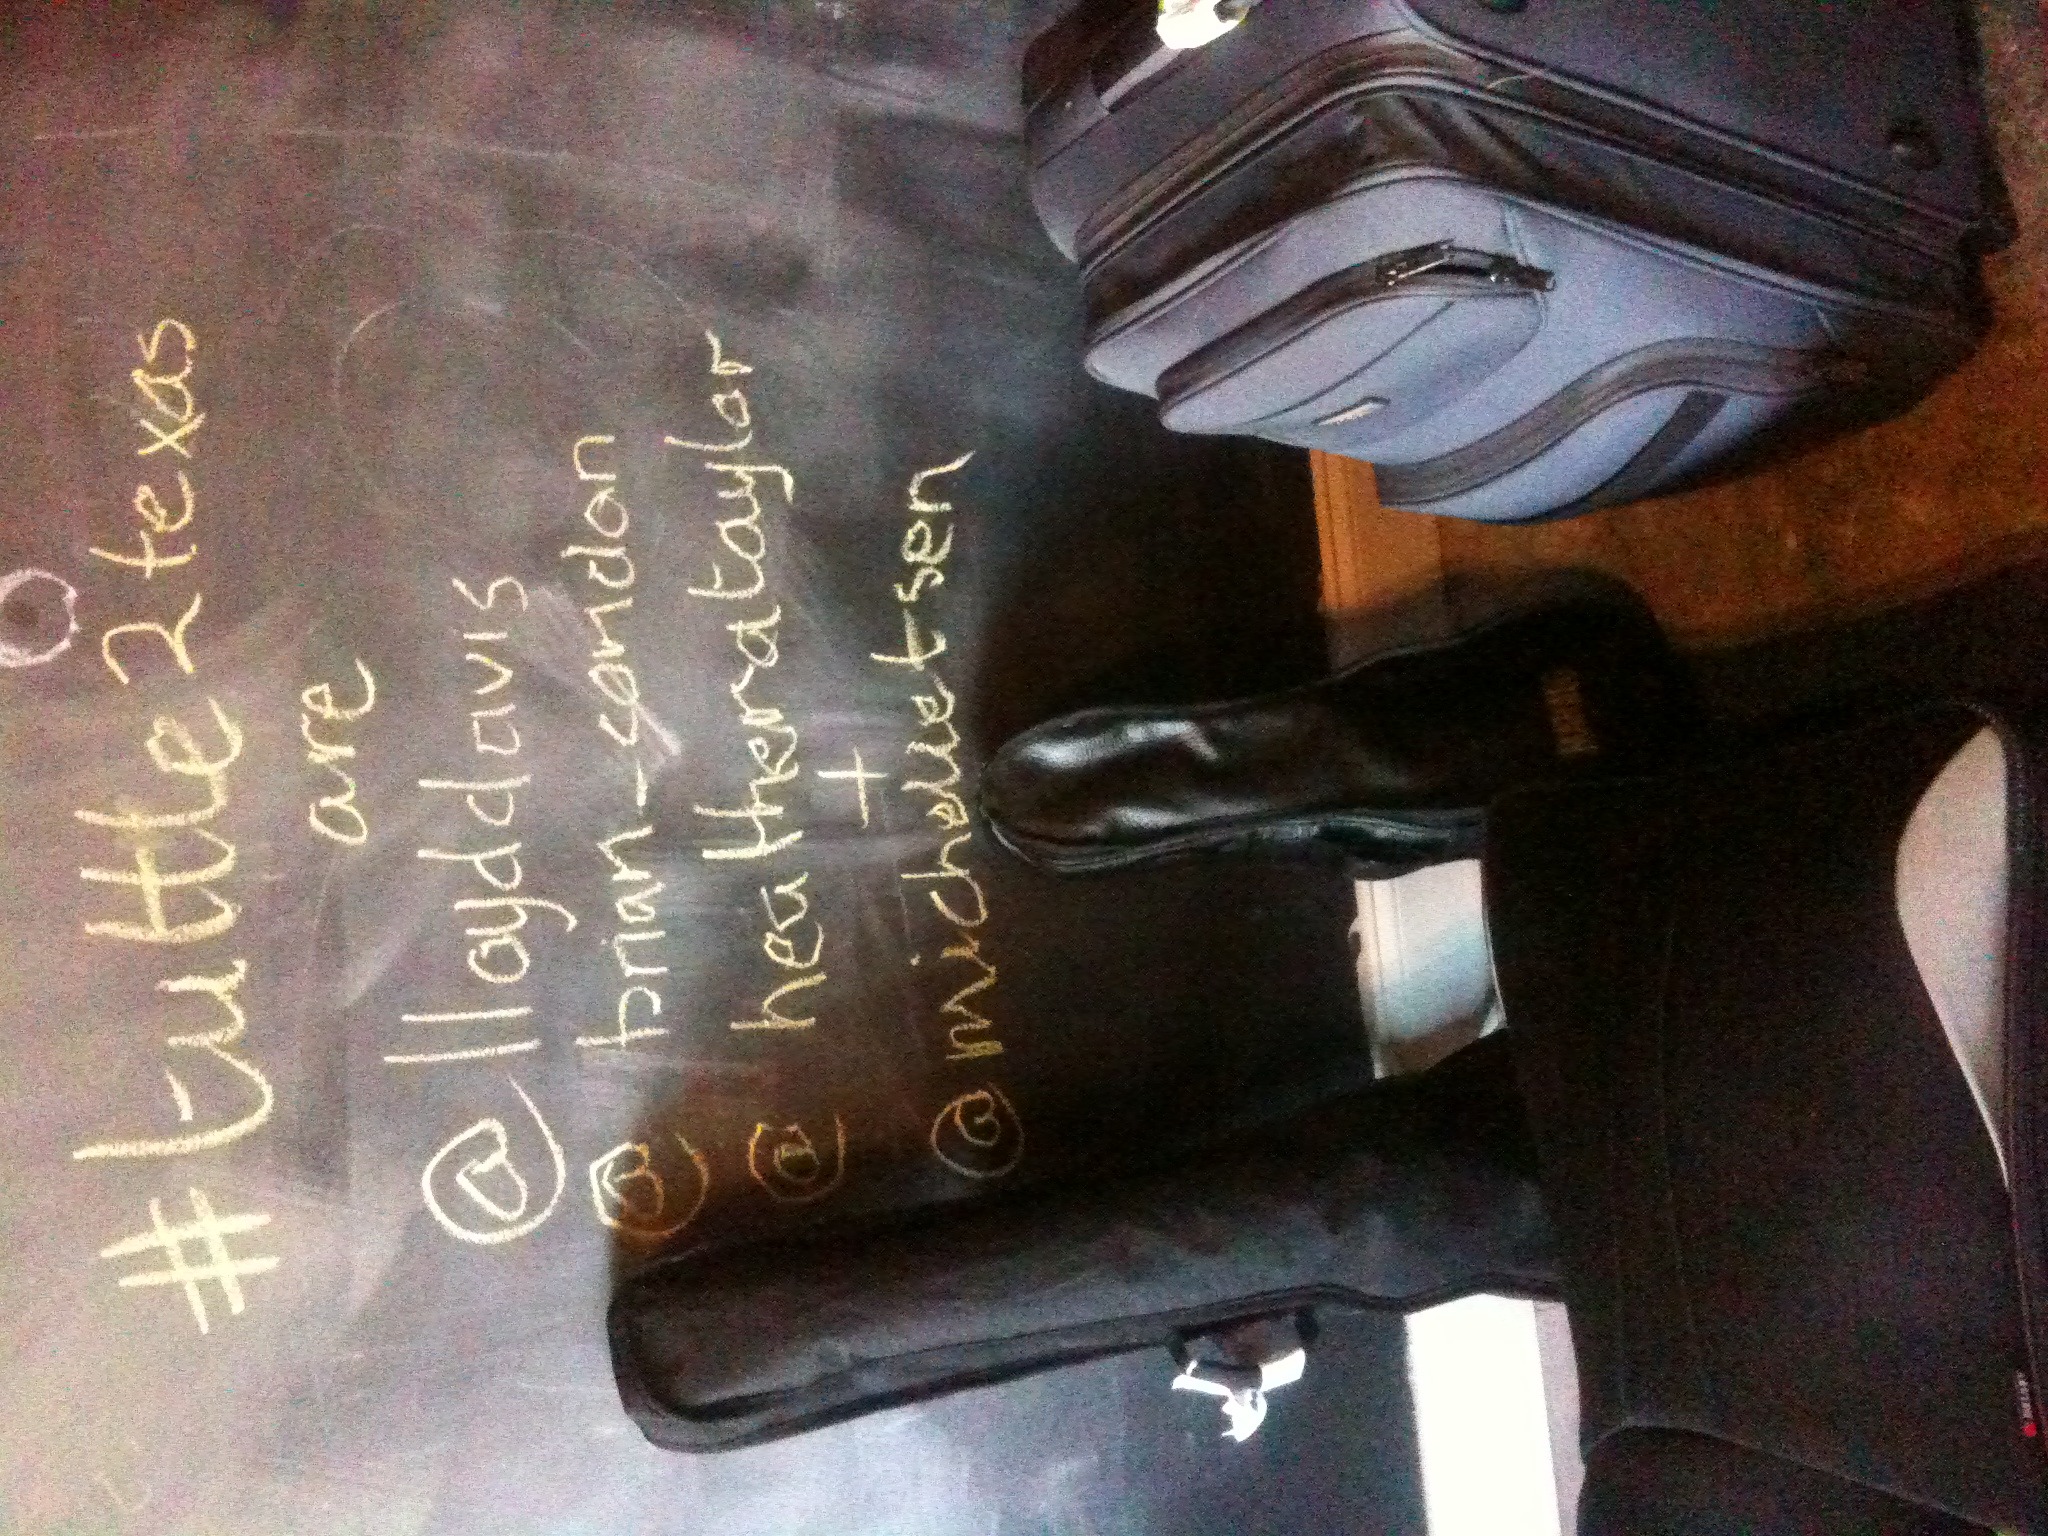 #tuttle2texas
are
@lloyddavis
@brian_sondon
@heatherataylor
+
@michelletsen